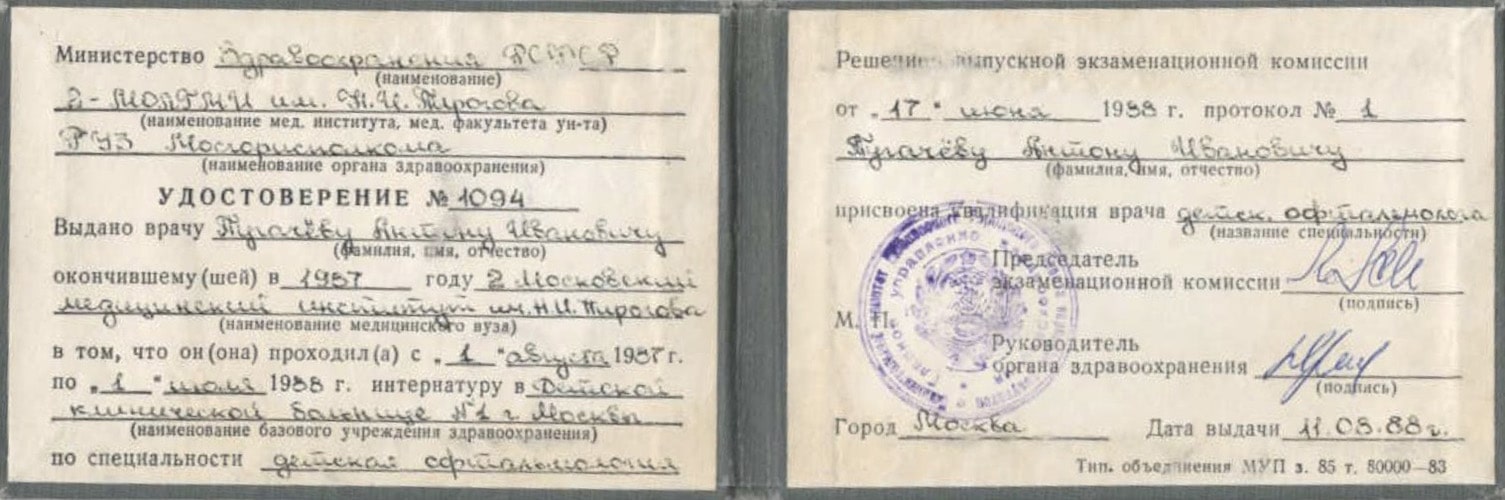 Министерство Здравоохранения РСФСР
(наименование)
2-МОЛГМИ им. Н.И. Пирогова
(наименование мед. института, мед. факультета ун-та)
ГУЗ Мосгорисполкома
(наименование органа здравоохранения)
УДОСТОВЕРЕНИЕ № 1094
Выдано врачу Пугачёву Антону Ивановичу
(фамилия, имя, отчество)
окончившему (шей) в 1987 году 2 Московский
медицинский институт им. Н.И. Пирогова
(наименование медицинского вуза)
в том, что он (она) проходил (а) с „1" августа 1987 г.
по „1" июля 1988 г. интернатуру в Детской
клинической больнице №1 г. Москвы
(наименование базового учреждения здравоохранения)
по специальности детская офтальмология
Решением выпускной экзаменационной комиссии
от „17" июня 1988 г. протокол № 1
Пугачёву Антону Ивановичу
(фамилия, имя, отчество)
присвоена квалификация врача детск. офтальмолога
(название специальности)
Председатель
экзаменационной комиссии
(подпись)
М. П.
Руководитель
органа здравоохранения
(подпись)
Город Москва Дата выдачи 11.08.88 г.
Тип. объединения МУП з. 85 т. 80000—83